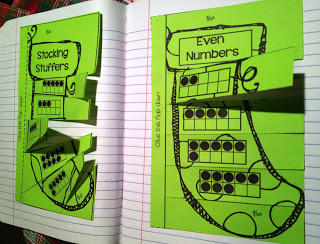 glue
Stocking
Stuffers
Glue this flap down
glue
Even
Numbers
Glue this flap down
glue